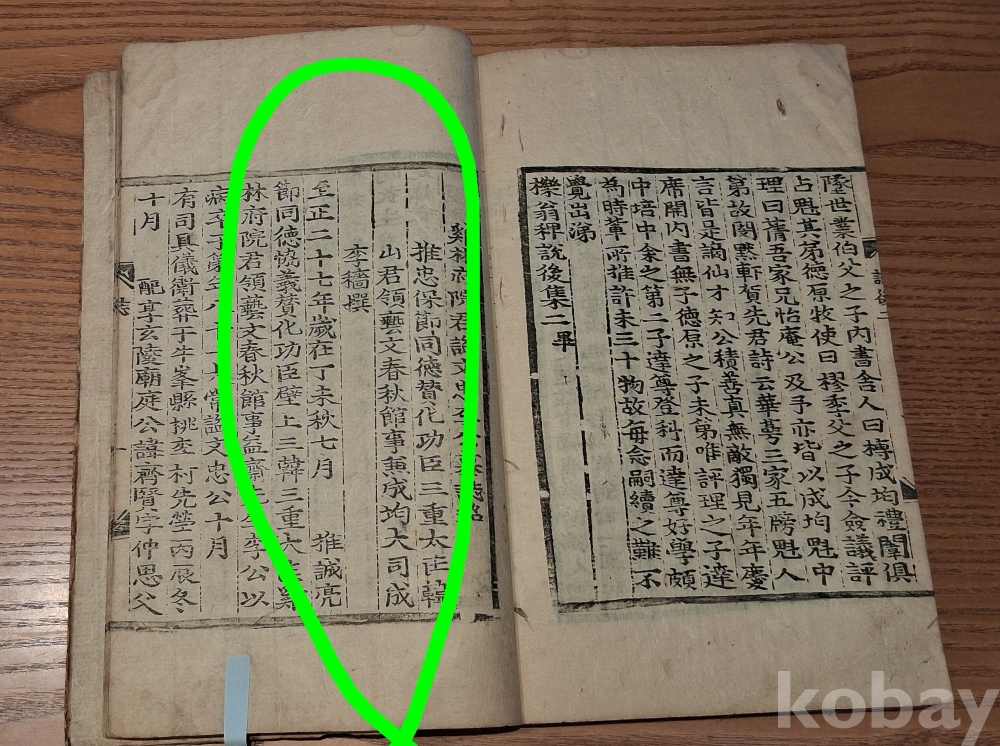 隆世業伯父之子內書舍人曰槫成均禮闈俱
占魁其弟德原牧使曰樛季父之子今僉議評
理曰蒨吾家兄怡庵公及予亦皆以成均魁中
第故閔默軒賀先君詩云華萼三家五牓魁人
言皆是謫仙才知公積善眞無敵獨見年年慶
席開內書無子德原之子未第唯評理之子達
中培中余之第二子達尊登科而達尊好學頗
爲時輩所推許未三十物故每念嗣續之難不
覺出涕
櫟翁稗說後集二畢
雞林府院君諡文忠李公墓誌銘
推忠保節同德贊化功臣三重大匡韓
山君領藝文春秋館事兼成均大司成
李穡撰
至正二十七年歲在丁未秋七月 推誠亮
節同德協義贊化功臣壁上三韓三重大匡雞
林府院君領藝文春秋館事益齋先生李公以
病卒于第年八十一太常諡文忠公十月
有司具儀衛葬于牛峯縣桃李村先塋丙辰冬
十月 配享玄陵廟庭公諱齊賢字仲思父
誌
kobay